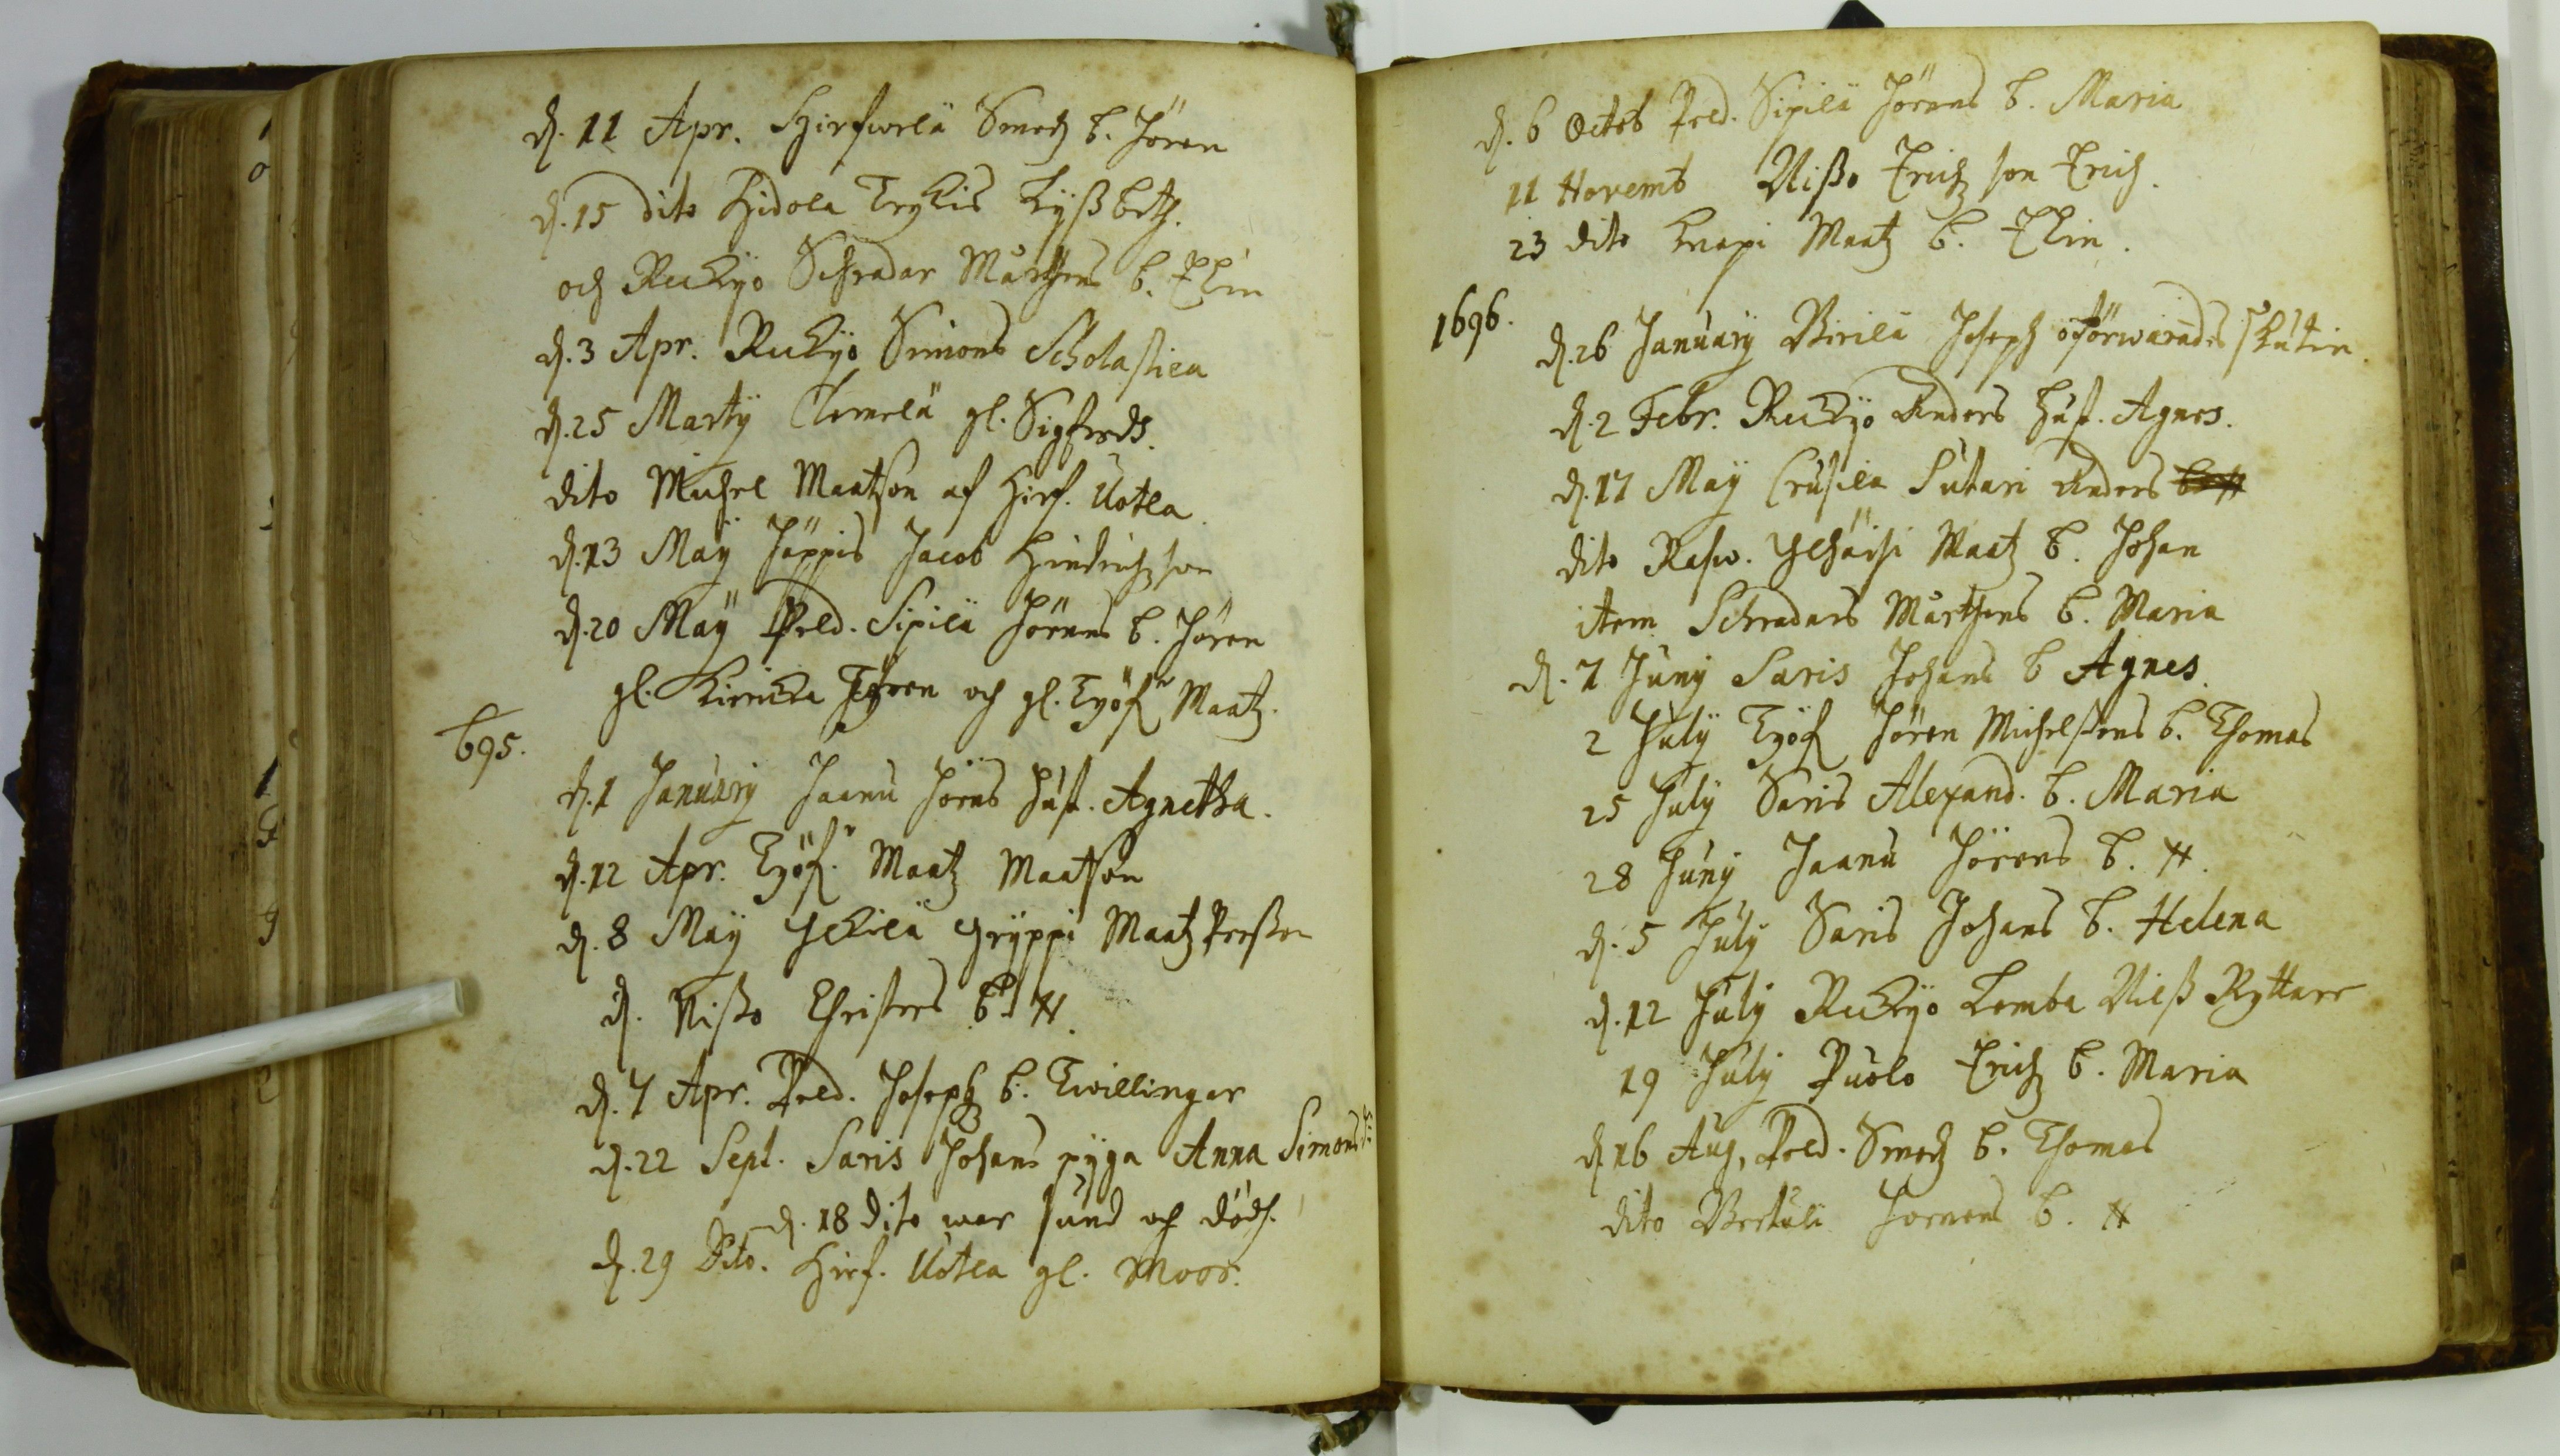 d. 11 Apr. Hirfwelä Smedz b. Jören
d. 15 dito Hidola Erkis Lÿßbetz.
och Ruckÿo Schradar Mårthens b. Elin
d. 3 Apr. Ruckÿo Simons Scholastica
d. 25 Martÿ Clemelä gl. Sigfredz.
dito Michel Maatzson af Hirf. Uotla.
d. 13 Maÿ Jäppis Jacob Hindrichzson
d. 20 Maÿ Peld. Sipilä Jörens b. Jören
gl. Jören och gl. Tÿöf Maatz.
695.
d. 1 Januarÿ Jaanu Jörns hust. Agnetha.
d. 12 Apr. Tÿöf. Maatz Maatzson
d. 8 Maÿ Yckilä Grÿppi Maatz Persson
d. Nißo Christers b. N.
d. 7 Apr. Peld. Josephz b. Twillingar
d. 22 Sept. Saris Johans pÿga Anna Simonsd.
d. 18 dito war sund och dödh.
d. 29 Dito. Hirf. Uotla gl. Moor.
d. 6 Octob Peld. Sipilä Jörens b. Maria
11 Novemb Nißo Erichz son Erich.
23 dito Knapi Maatz b. Elin.
1696.
d. 26 Januarÿ Pirilä Joseph oförwarandes skutin.
d. 2 Febr. Ruckÿo Anders hust. Agnes.
d. 17 Maÿ Crusila Sutari Anders
dito Rasw. Ylhäisi Maatz b. Johan
item Schradars Mårthens b. Maria
d. 7 Junÿ Saris Johans b Agnes.
2 Julÿ Tÿöf Jören Michelssons b. Thomas
25 Julÿ Saris Alexand. b. Maria
28 Junÿ Jaanu Jörens b. N.
d. 5 Julÿ Saris Johans b. Helena
d. 12 Julÿ Ruckÿo Lemba Nilß Ryttare
19 Julÿ Puolo Erichz b. Maria
d. 16 Aug. Peld. Smedz b. Thomas
dito Pertuli Joerens b. N